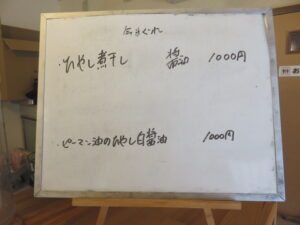 気まぐれ
・ひやし煮干し 醤油 1000円
・ピーマン油のひやし白醤油 1000円